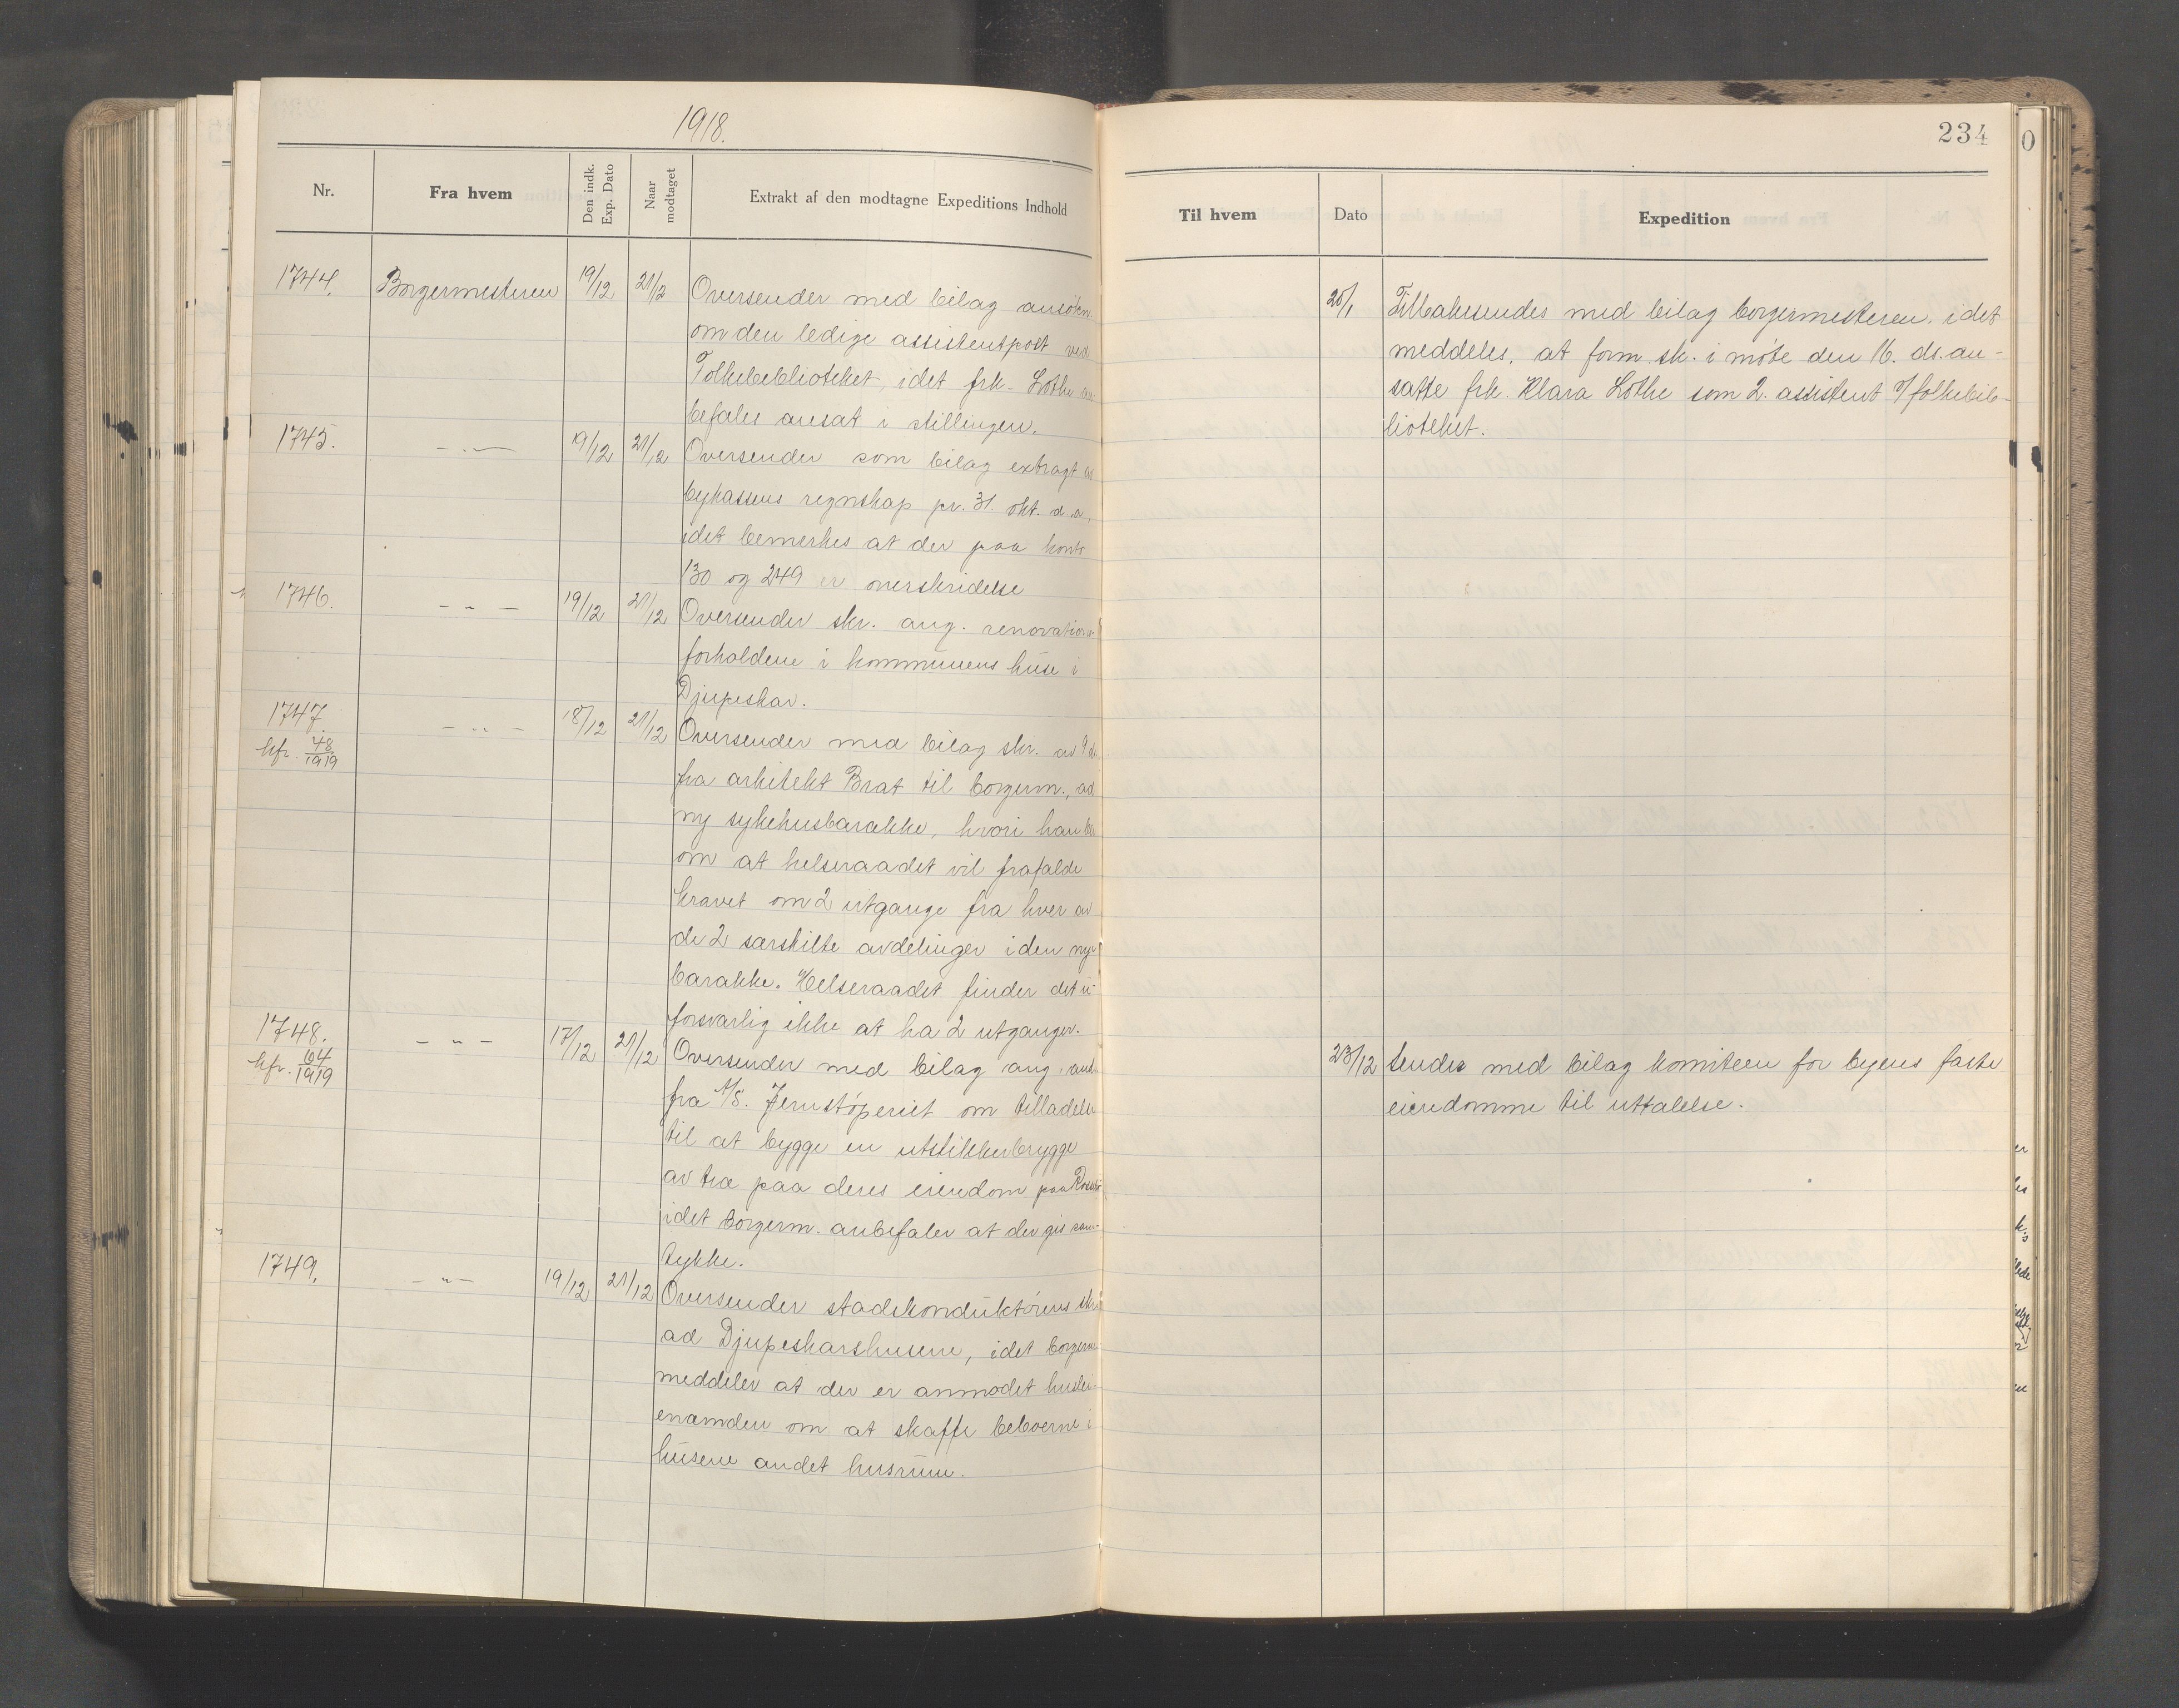 1918.
234
Nr.
Fra hvem
Den indk. Exp. Dato
Naar modtaget
Extrakt af den modtagne Expeditions Indhold
Til hvem
Dato
Expedition
1744. Borgermesteren 19/12 21/12 Oversender med bilag ansökn.
om den ledige assistentpost ved
Folkebiblioteket, idet frk. Lothe an
befales ansat i stillingen.
1745. - " - 19/12 21/12 Oversender som bilag extragt av
bykassens regnskap pr. 31. okt. d.a.
idet bemerkes at der paa konto
130 og 249 er overskridelse
1746. - " - 19/12 21/12 Oversender skr. ang. renovations-
forholdene i kommunens huse i
Djupeskar.
1747. - " - 18/12 21/12 Oversender med bilag skr. av 9 ds.
kfr. 48/1919
fra arkitekt Brat til borgerm., ad
ny sykehusbarakke, hvori han ber
om at helseraadet vil frafalde
kravet om 2 utgange fra hver av
de 2 særskilte avdelinger i den nye
barakke. Helseraadet finder det u-
forsvarlig ikke at ha 2 utganger.
1748. - " - 17/12 21/12 Oversender med bilag ang. ands.
kfr. 64/1919
fra A/S. Jernstöperiet om tilladelse
til at bygge en utstikkerbrygge
av træ paa deres eiendom paa
idet borgerm. anbefaler at der gis sam-
tykke.
1749. - " - 19/12 21/12 Oversender stadskonduktörens skr.
ad Djupeskarshusene, idet borgerm.
meddeler at der er anmodet huslei-
enæmden om at skaffe beboerne i
husene andet husrum.
20/1 Tilbakesendes med bilag borgermesteren, idet
meddeles, at form.sk. i möte den 16. ds. an-
satte frk. Klara Lothe som 2. assistent v/ folkebib-
lioteket.
23/12 Sendes med bilag komiteen for byens faste
eiendomme til uttalelse.